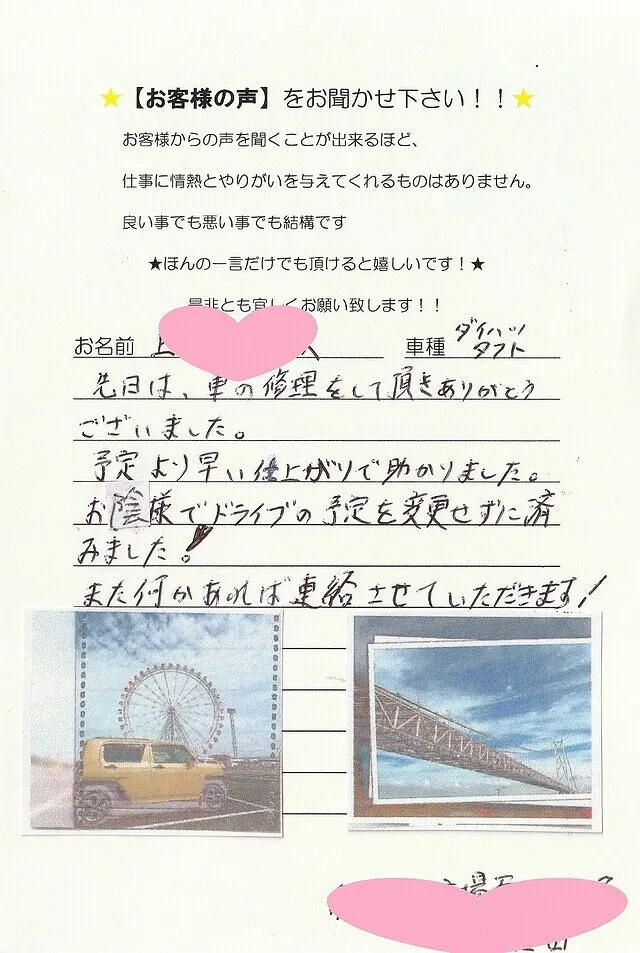 ★【お客様の声】をお聞かせ下さい！！★
お客様からの声を聞くことが出来るほど、
仕事に情熱とやりがいを与えてくれるものはありません。
良い事でも悪い事でも結構です
★ほんの一言だけでも頂けると嬉しいです！★
是非とも宜しくお願い致します！！
お名前 上 車種 ダイハツ
タフト
先日は、車の修理をして頂きありがとう
ございました。
予定より早い仕上がりで助かりました。
お陰様でドライブの予定を変更せずに済
みました！
また何かあれば連絡させていただきます！